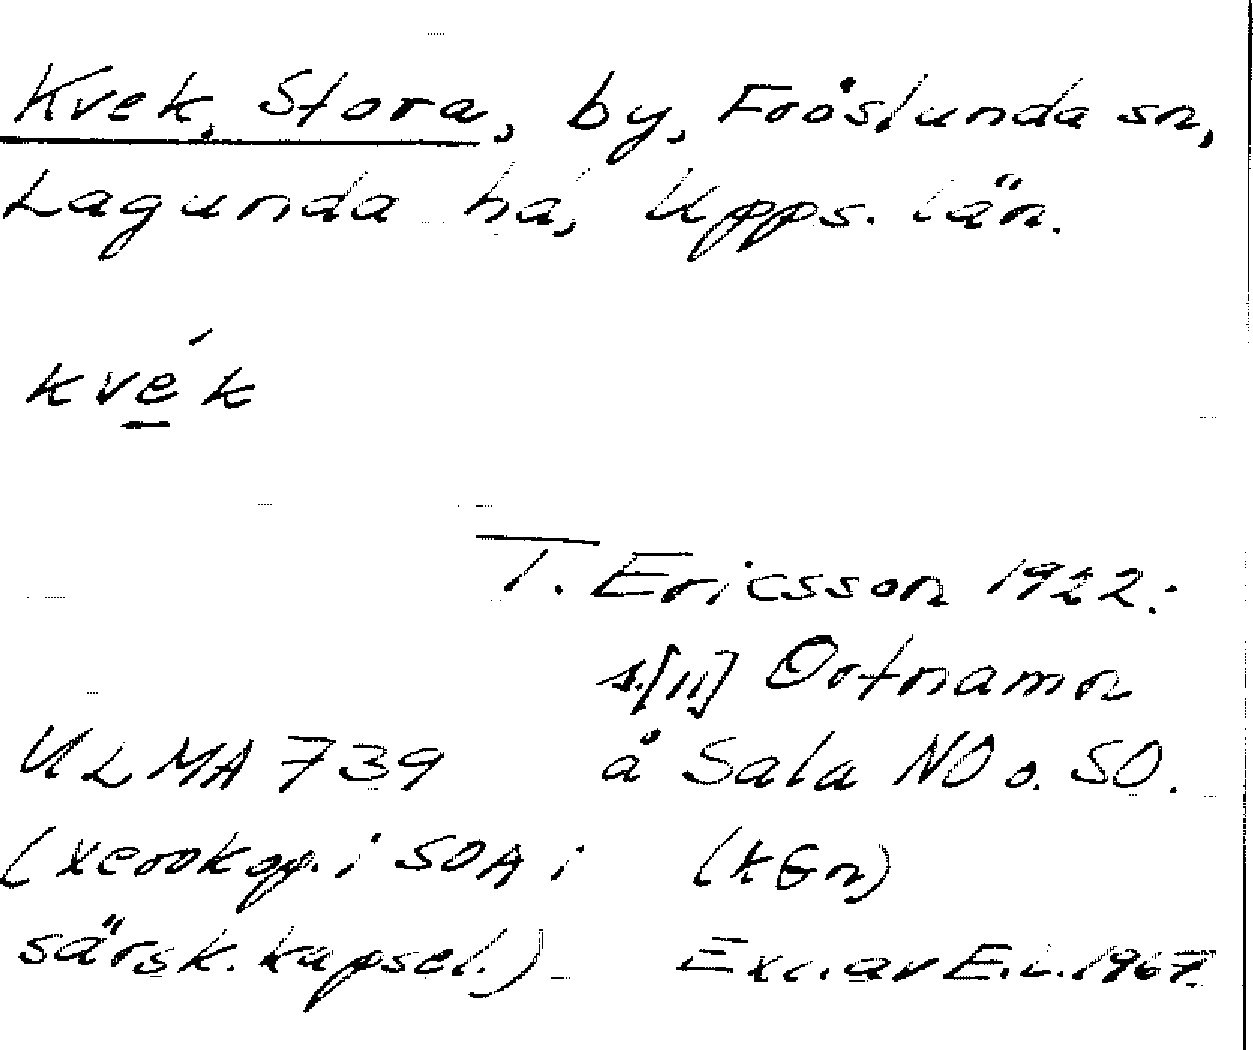 Kvek, Stora, by, Fröslunda sn,
Lagunda hd, Upps. län.
kvék
T. Ericsson 1922:
s. [11] Ortnamn
ULMA 739 å Sala NO o. SO.
(xerokop. i SOA i (tGn)
särsk. kapsel.) Exc. av E.L. 1967.